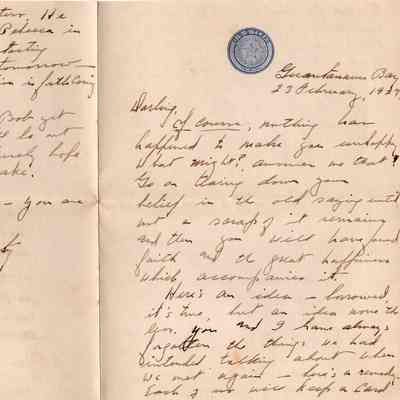 ters. He
Rebecca in
testing
tomorrow —
is forthcoming
Bob get
to out
hope
— you are
Guantanamo Bay
23 February, 192
Darling,
Of course, nothing has
happened to make you unhappy
What might? answer me that?
Go on tearing down your
belief in the old saying until
not a scrap of it remains
and then you will have found
faith and the great happiness
which accompanies it.
Here's an idea — borrowed,
it's true, but an idea none the
less. You and I have always
forgotten the things we had
intended talking about when
we met again — here's a remedy.
Each of us will keep a card